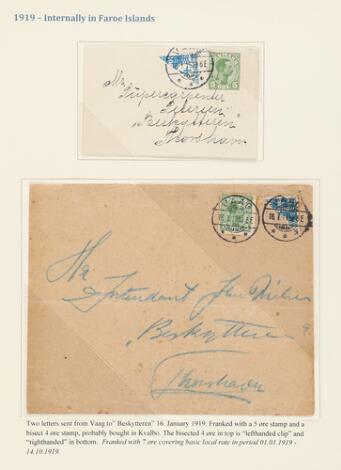 1919 – Internally in Faroe Islands
5
Hr.
Supercarpenter
Petersen
"Beskytteren"
Thorshavn
VAAG
VAAG
Hr
Intendant
Beskytteren
Thorshavn
Two letters sent from Vaag to" Beskytteren" 16. January 1919. Franked with a 5 øre stamp and a
bisect 4 øre stamp, probably bought in Kvalbo. The bisected 4 øre in top is "lefthanded clip" and
"righthanded" in bottom. Franked with 7 øre covering basic local rate in period 01.01.1919 -
14.10.1919.